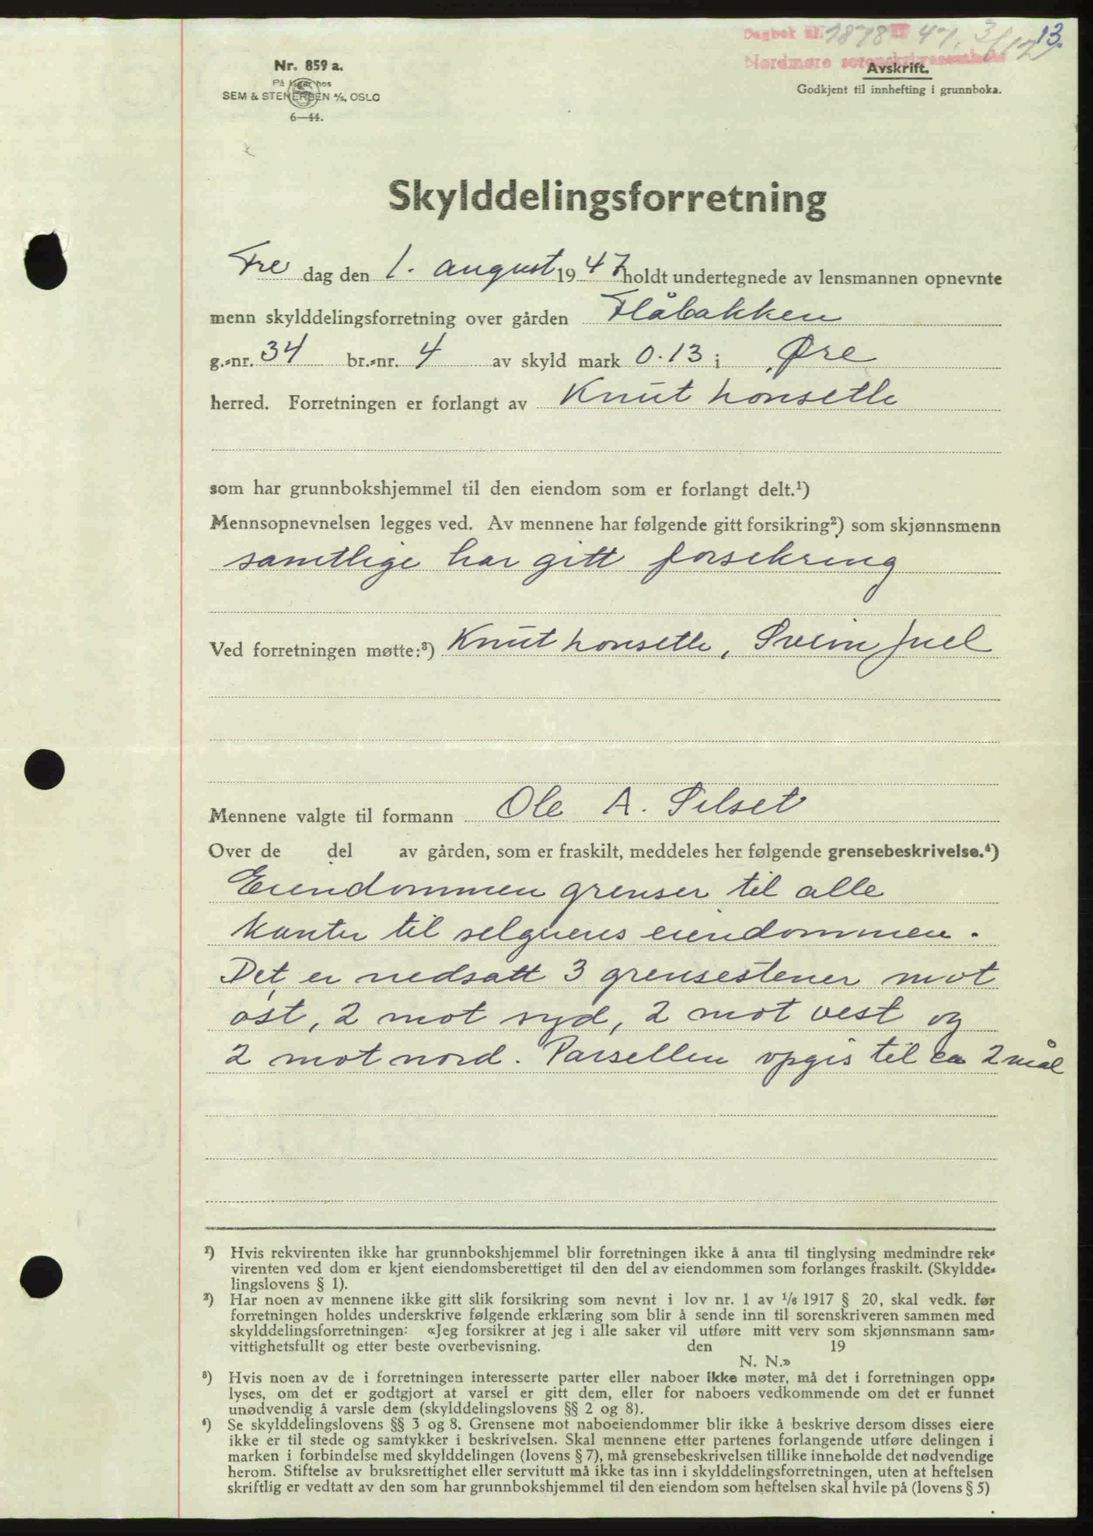 Dagbok nr. 2878 47. 3/12 13.
Nordmøre sorenskriverembete
Nr. 859 a.
På lager hos
SEM & STENERSEN A/S, OSLO
6—44.
Avskrift.
Godkjent til innhefting i grunnboka.
Skylddelingsforretning
Fre dag den 1. august 19 47 holdt undertegnede av lensmannen opnevnte
menn skylddelingsforretning over gården Flåbakken
g.-nr. 34 br.-nr. 4 av skyld mark 0.13 i Øre
herred. Forretningen er forlangt av Knut Lonsetle
som har grunnbokshjemmel til den eiendom som er forlangt delt.¹)
Mennsopnevnelsen legges ved. Av mennene har følgende gitt forsikring²) som skjønnsmenn
samtlige har gitt forsekring
Ved forretningen møtte:³) Knut Lonsetle, Svein Juel
Mennene valgte til formann Ole A. Silset
Over de del av gården, som er fraskilt, meddeles her følgende grensebeskrivelse.⁴)
Eiendommen grenser til alle
kanter til selgerens eiendommen.
Det er nedsatt 3 grensestener mot
øst, 2 mot syd, 2 mot vest og
2 mot nord. Parsellen opgis til ca 2 mål
¹) Hvis rekvirenten ikke har grunnbokshjemmel blir forretningen ikke å anta til tinglysing medmindre rek-
virenten ved dom er kjent eiendomsberettiget til den del av eiendommen som forlanges fraskilt. (Skyldde-
lingslovens § 1).
²) Har noen av mennene ikke gitt slik forsikring som nevnt i lov nr. 1 av 1/6 1917 § 20, skal vedk. før
forretningen holdes underskrive følgende erklæring som blir å sende inn til sorenskriveren sammen med
skylddelingsforretningen: «Jeg forsikrer at jeg i alle saker vil utføre mitt verv som skjønnsmann sam-
vittighetsfullt og etter beste overbevisning. den 19
N. N.»
³) Hvis noen av de i forretningen interesserte parter eller naboer ikke møter, må det i forretningen opp-
lyses, om det er godtgjort at varsel er gitt dem, eller for naboers vedkommende om det er funnet
unødvendig å varsle dem (skylddelingslovens §§ 2 og 8).
⁴) Se skylddelingslovens §§ 3 og 8. Grensene mot naboeiendommer blir ikke å beskrive dersom disses eiere
ikke er til stede og samtykker i beskrivelsen. Skal mennene etter partenes forlangende utføre delingen i
marken i forbindelse med skylddelingen (lovens § 7), må grensebeskrivelsen tillike inneholde det nødvendige
herom. Stiftelse av bruksrettighet eller servitutt må ikke tas inn i skylddelingsforretningen, uten at heftelsen
skriftlig er vedtatt av den som har grunnbokshjemmel til den eiendom som heftelsen skal hvile på (lovens § 5)